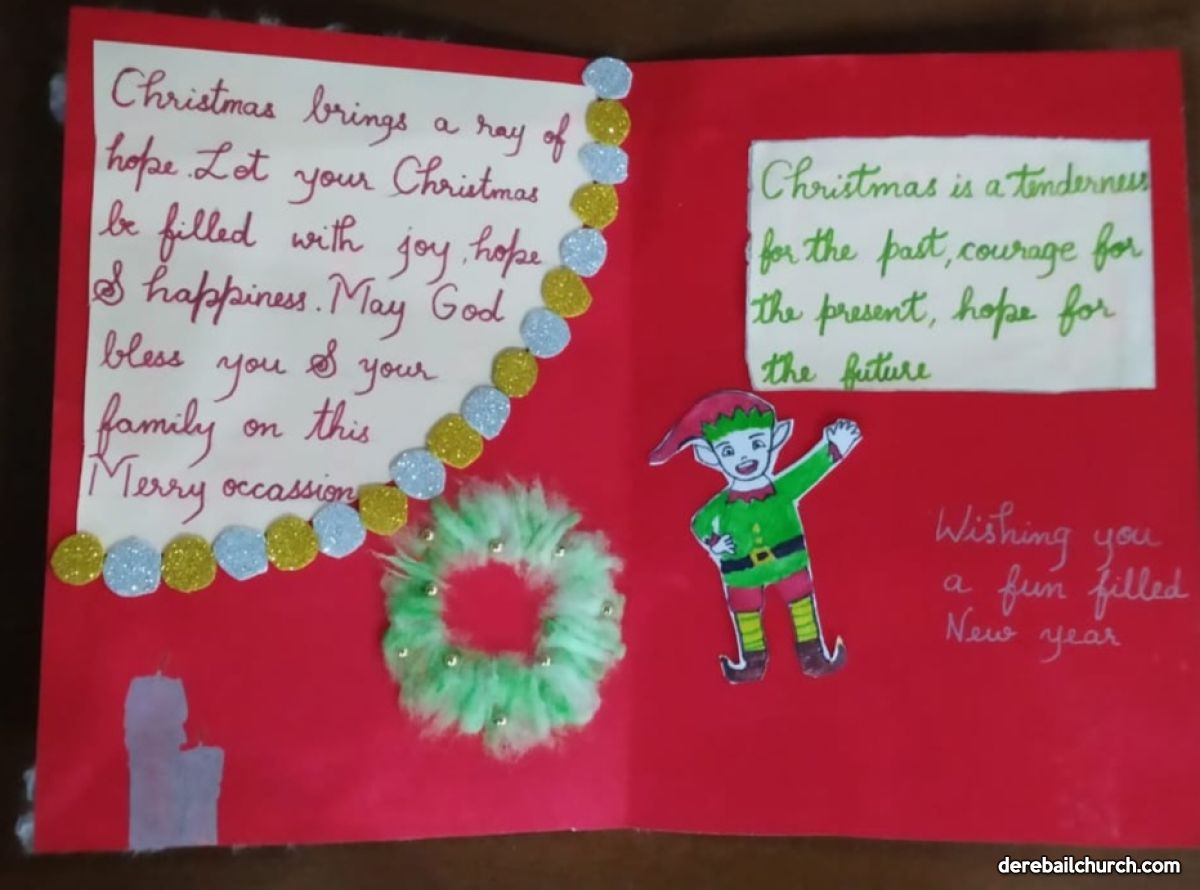 Christmas brings a ray of
hope. Let your Christmas
be filled with joy, hope
& happiness. May God
bless you & your
family on this
Merry occassion
Christmas is a tenderness
for the past, courage for
the present, hope for
the future
Wishing you
a fun filled
New year
derebailchurch.com